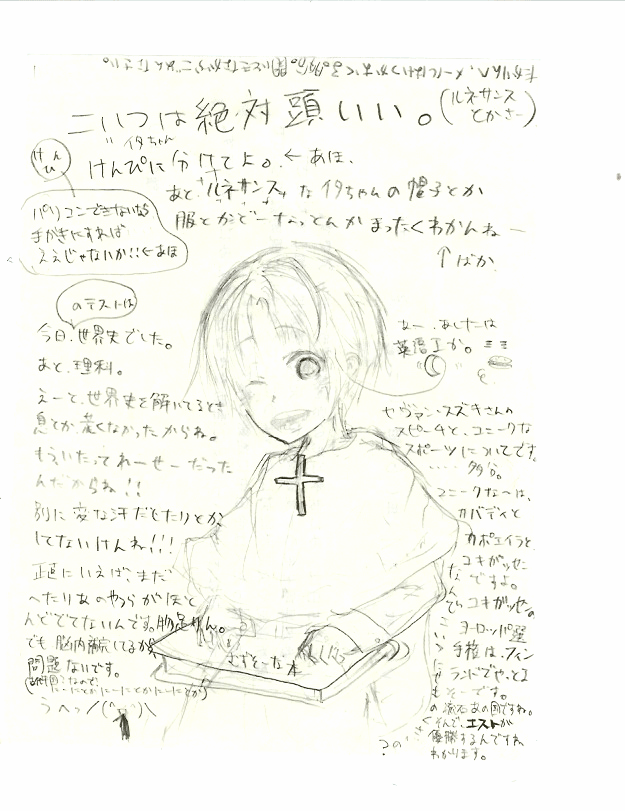 こいつは絶対頭いい。(ルネサンス
とかさー)
イタちゃん
けんぴ
けんぴに分けてよ。←あほ、
あと、"ルネサンス"なイタちゃんの帽子とか
服とかどーなっとんかまったくわかんねー
↑ばか
パソコンできないなら
手がきにすれば
ええじゃないか!!←あほ
のテストは
今日、世界史でした。
あと、理科。
えーと、世界史を解いてるとき
息とか、荒くなかったからね。
もういたってれーせーだった
んだからね!!
別に変な汗だしたりとか、
してないけんね!!!
正直にいえば、まだ
へたりあのやつらがほと
んどでてないんです。物足りん。
でも脳内補完してるから
問題ないです。
うへっ/(^ー^)\
あー、あしたは
英語Iか。
セヴァン・スズキさんの
スピーチと、ユニークな
スポーツについてです。
・・・・多分。
ユニークなへは、
カバディと
カポエイラと
ユキがっせん
ですよ。
なんでもユキがっせんの
ヨーロッパ選
手権は、フィン
ランドでやっとる
そーです。
さすがあの国ですね。
そんで、エストが
優勝するんですね
わかります。
むずそーな本